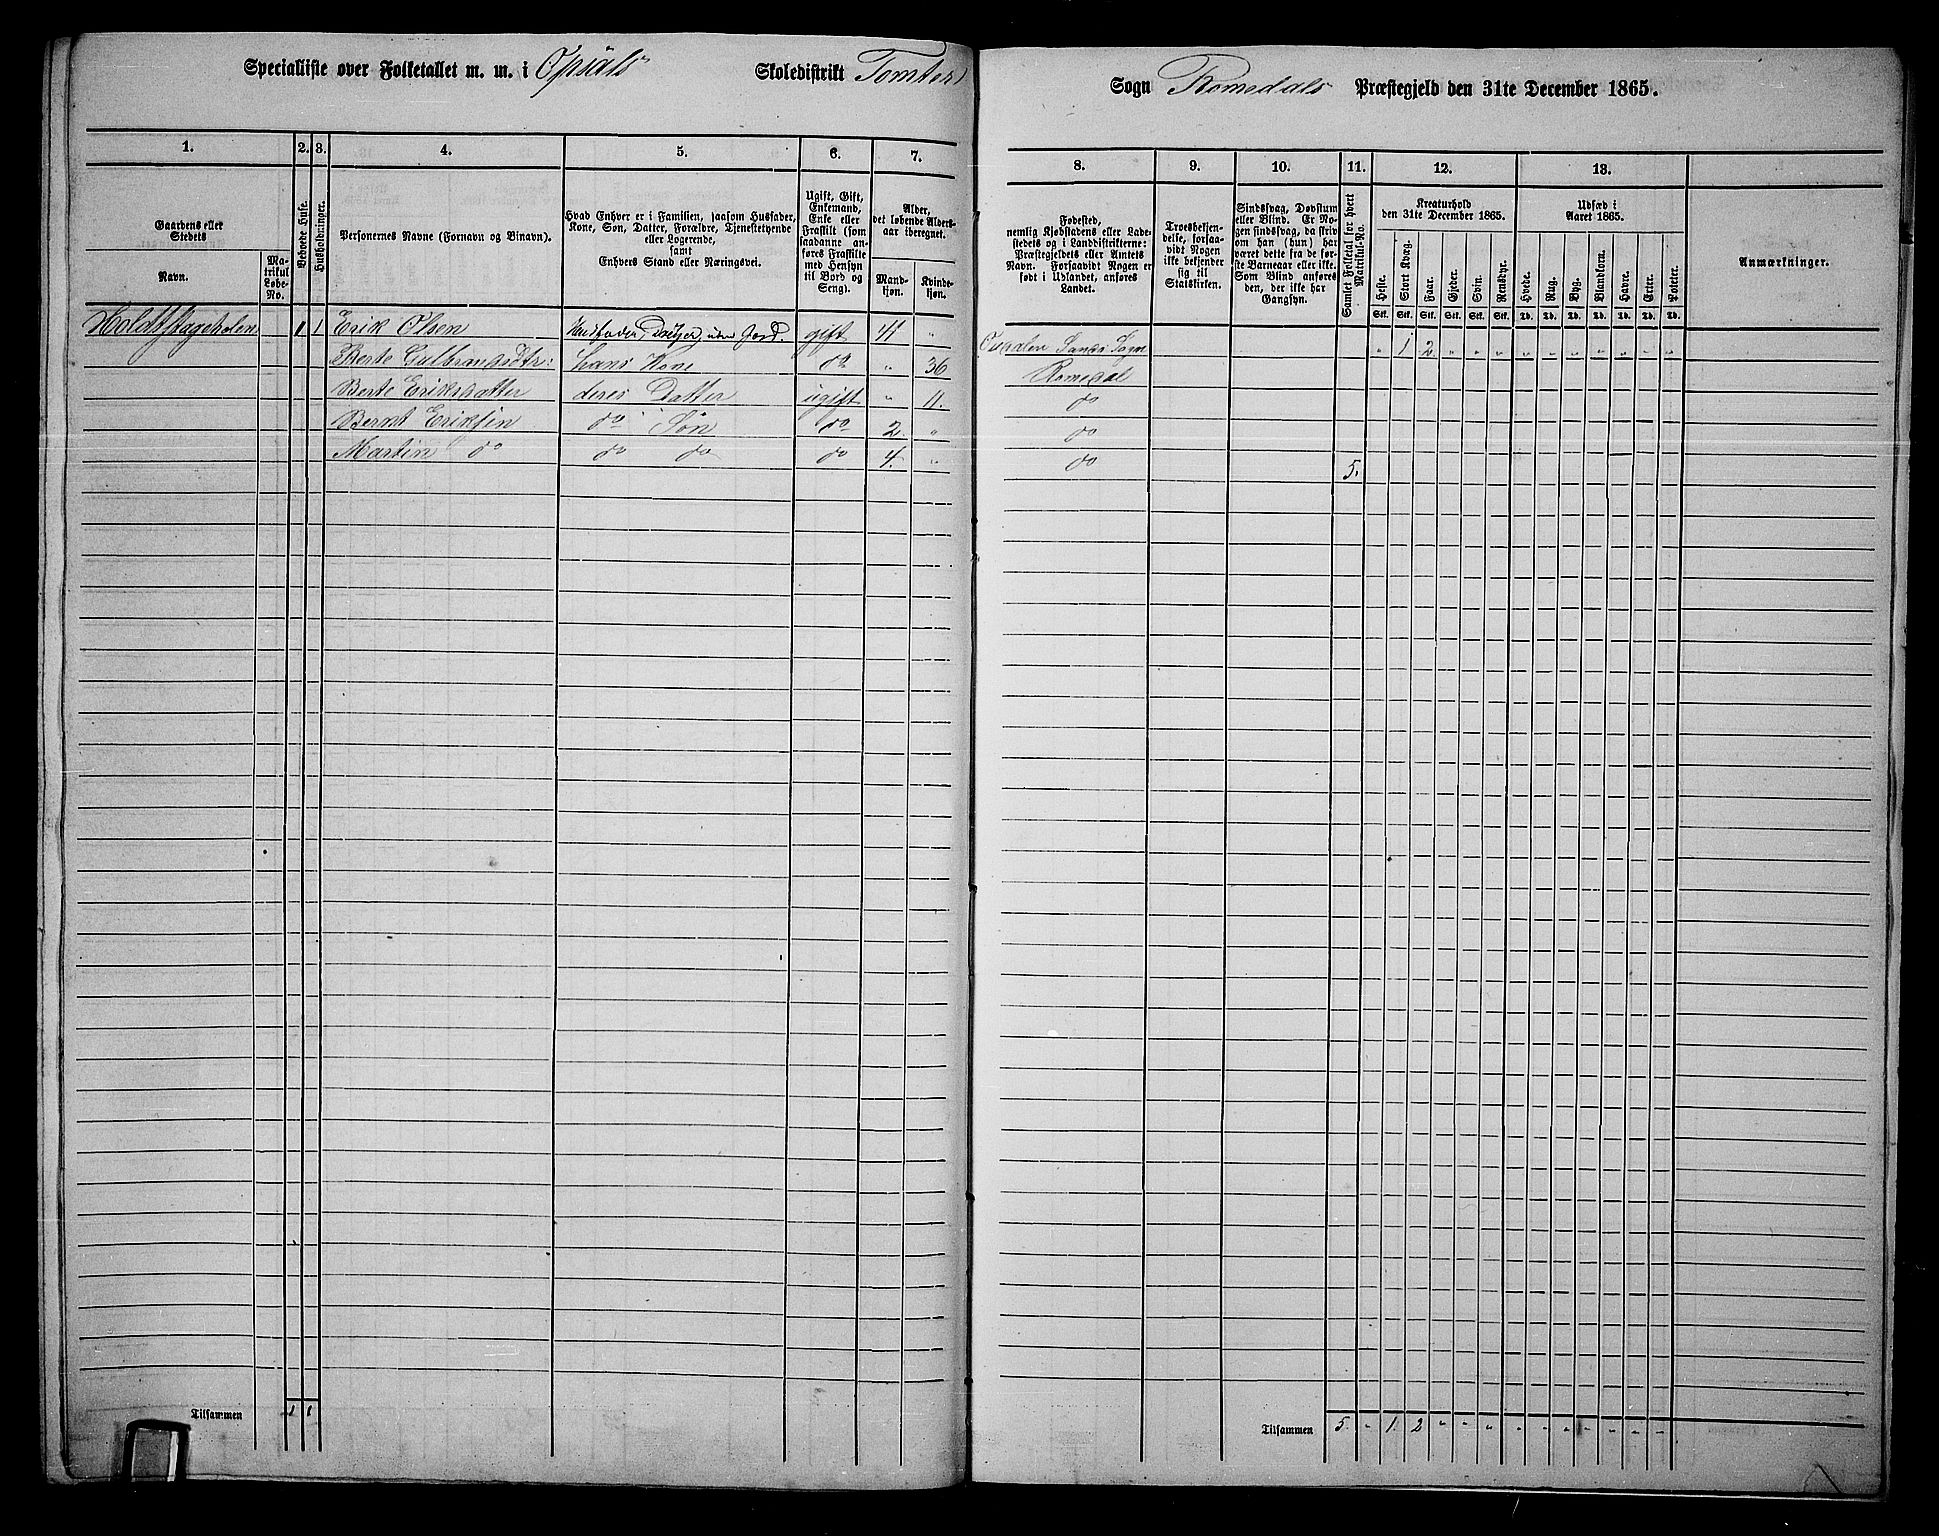 Specialliste over Folketallet m. m. i Opsals Skoledistrikt Tomter
Sogn Romedals Præstegjeld den 31te December 1865.
1. 2. 3. 4. 5. 6. 7.
8. 9. 10. 11. 12. 13.
Gaardens eller
Stedets
Navn.
Matrikul
Løbe-
No.
Beboede Huse.
Husholdninger.
Personernes Navne (Fornavn og Binavn).
Hvad Enhver er i Familien, saasom Husfader,
Kone, Søn, Datter, Forældre, Tjenestetyende
eller Logerende,
samt
Enhvers Stand eller Næringsvei.
Ugift, Gift,
Enkemand,
Enke eller
Fraskilt (som
saadanne an-
føres Fraskilte
med Hensyn
til Bord og
Seng).
Alder,
det løbende Alders-
aar iberegnet.
Mand-
kjøn.
Kvinde-
kjøn.
Fødested,
nemlig Kjøbstadens eller Lade-
stedets og i Landdistrikterne:
Præstegjeldets eller Amtets
Navn. Forsaavidt Nogen er
født i Udlandet, anføres
Landet.
Troesbekjen-
delse, forsaa-
vidt Nogen
ikke bekjender
sig til
Statskirken.
Sindssvag, Døvstum
eller Blind. Er No-
gen sindssvag, da skriv
om han (hun) har
været dette fra de før-
ste Barneaar eller ikke.
Som Blind anføres
den, der ikke har
Gangsyn.
Samlet Folketal for hvert
Matrikul-No.
Kreaturhold
den 31te December 1865.
Heste. Stort Kvæg. Faar. Gjeder. Svin. Rensdyr.
Stk. Stk. Stk. Stk. Stk. Stk.
Udsæd i
Aaret 1865.
Hvede. Rug. Byg. Blandkorn. Havre. Erter. Poteter.
Td. Td. Td. Td. Td. Td. Td.
Anmærkninger.
1 1 Erik Olsen gift 41 " Sands Sogn " 1 2 " " " " " " " " " "
Berte Gulbrandsdtr: hans Kone do " 36 Romedal
Berte Eriksdatter deres Datter ugift " 11. do
Bernt Eriksen do Søn do 2. " do
Martin do do do do 4. " do 5.
Tilsammen 1 1
Tilsammen 5. " 1. 2 " " " " " " " " " "